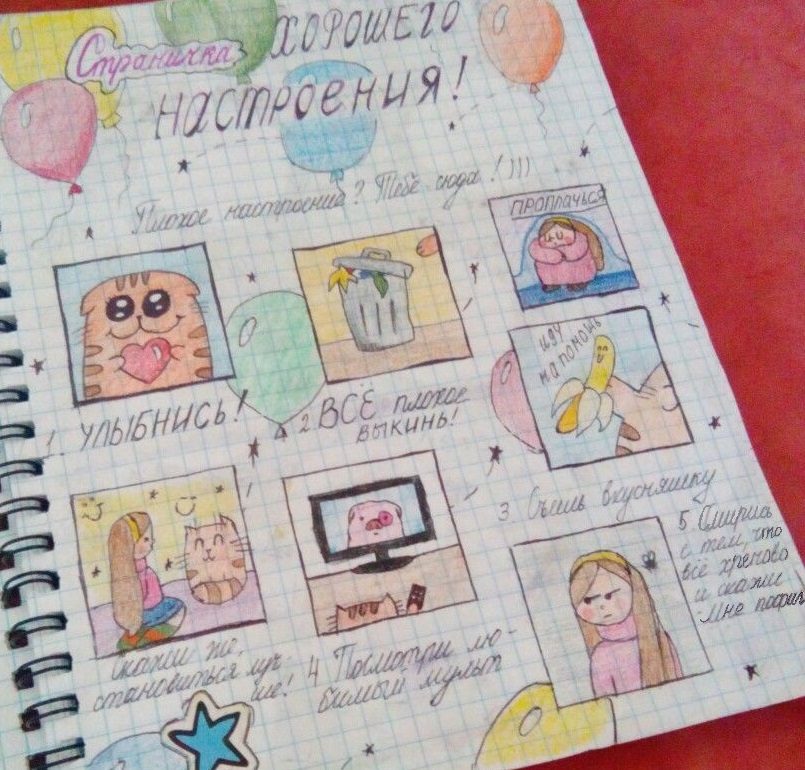 Страничка ХОРОШЕГО
НАСТРОЕНИЯ!
Плохое настроение? Тебе сюда!)))
1. УЛЫБНИСЬ!
2. ВСЁ плохое
выкинь!
ПРОПЛАЧЬСЯ
ИДУ
НА ПОМОЩЬ
3 Съешь вкусняшку
Скажи же,
становиться луч-
ше!
4 Посмотри лю-
бимый мульт
5. Смирись
с тем, что
всё хреново
и скажи
мне пофиг